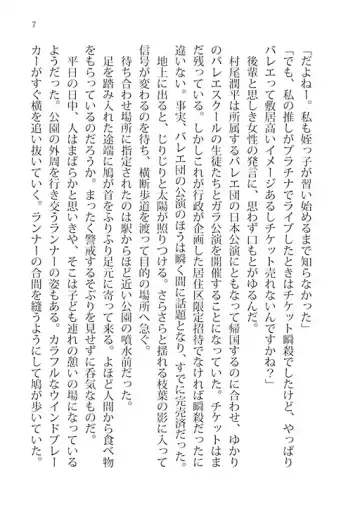 7
「だよねー。私も姪っ子が習い始めるまで知らなかった」
「でも、私の推しがプラチナでライブしたときはチケット瞬殺でしたけど、やっぱり
バレエって敷居高いイメージあるしチケット売れないんですかね？」
後輩と思しき女性の発言に、思わず口もとがゆるんだ。
村尾潤平は所属するバレエ団の日本公演にともなって帰国するのに合わせ、ゆかり
のバレエスクールの生徒たちとガラ公演を開催することになっていた。チケットはま
だ残っている。しかしこれが行政が企画した居住区限定招待でなければ瞬殺だったに
違いない。事実、バレエ団の公演のほうは瞬く間に話題となり、すでに完売済だった。
地上に出ると、じりじりと太陽が照りつける。さらさらと揺れる枝葉の影に入って
信号が変わるのを待ち、横断歩道を渡って目的の場所へ急ぐ。
待ち合わせ場所に指定されたのは駅からほど近い公園の噴水前だった。
足を踏み入れた途端に鳩が首をふりふり足元に寄って来る。よほど人間から食べ物
をもらっているのだろうか。まったく警戒するそぶりを見せずに呑気なものだ。
平日の日中、人はまばらかと思いきや、そこは子ども連れの憩いの場になっている
ようだった。公園の外周を行き交うランナーの姿もある。カラフルなウインドブレー
カーがすぐ横を追い抜いていく。ランナーの合間を縫うようにして鳩が歩いていた。